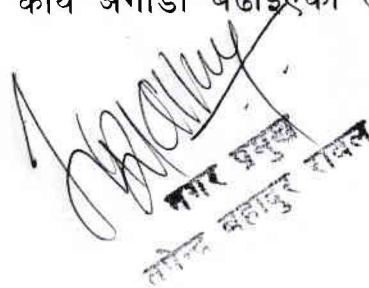 कार्य अगाडी बढाईएको
नगर प्रमुख
तपेन्द्र बहादुर रावल